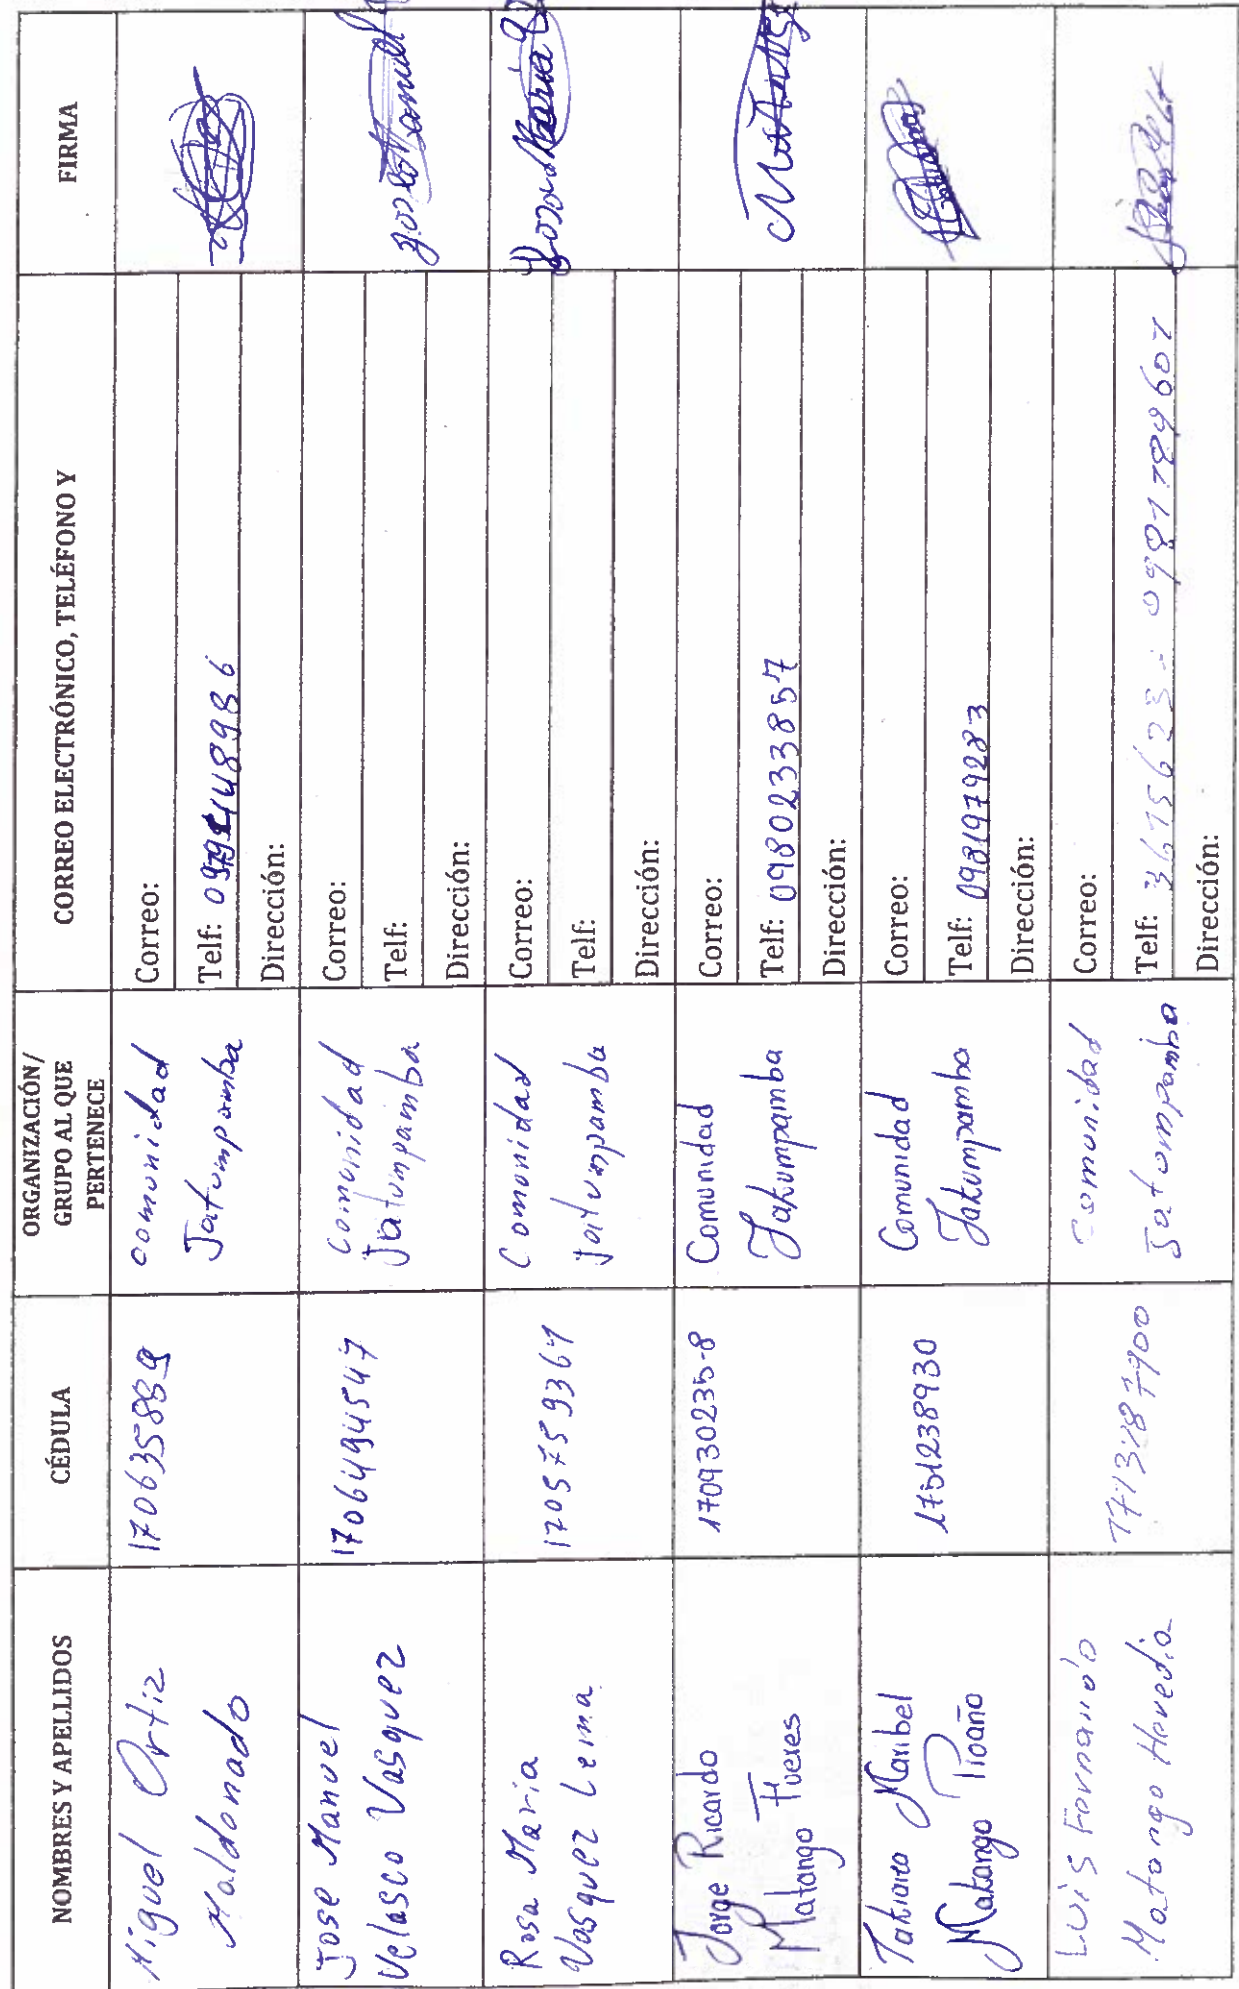 NOMBRES Y APELLIDOS
CÉDULA
ORGANIZACIÓN/
GRUPO AL QUE
PERTENECE
CORREO ELECTRÓNICO, TELÉFONO Y
FIRMA
Miguel Ortiz
Maldonado
comunidad
Jatumpamba
Correo:
Telf:
Dirección:
Jose Manuel
Velasco Vasquez
1706494547
comunidad
Jatumpamba
Correo:
Telf:
Dirección:
Jose Manuel
Rosa Maria
Vasquez Lema
Comunidad
Jatumpamba
Correo:
Telf:
Dirección:
Rosa Maria
Jorge Ricardo
Matango Fueres
170930235-8
Comunidad
Jatumpamba
Correo:
Telf: 0980233857
Dirección:
Maribel
Matango
1751238930
Comunidad
Jatumpamba
Correo:
Telf: 0981979283
Dirección:
Luis Fernando
Matango Heredia
Comunidad
Jatumpamba
Correo:
Telf:
Dirección: